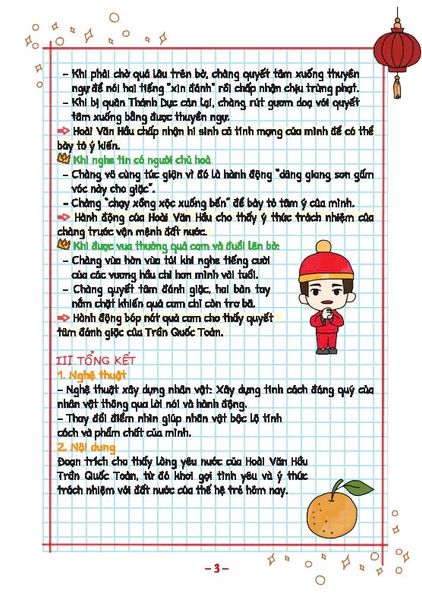 – Khi phải chờ quá lâu trên bờ, chàng quyết tâm xuống thuyền
ngự để nói hai tiếng "xin đánh" rồi chấp nhận chịu trừng phạt.
– Khi bị quân Thánh Dực cản lại, chàng rút gươm dọa với quyết
tâm xuống bằng được thuyền ngự.
⇨ Hoài Văn Hầu chấp nhận hi sinh cả tính mạng của mình để có thể
bày tỏ ý kiến.
Khi nghe tin có người chủ hoà
– Chàng vô cùng tức giận vì đó là hành động "dâng giang sơn gấm
vóc này cho giặc".
– Chàng "chạy xồng xộc xuống bến" để bày tỏ tâm ý của mình.
⇨ Hành động của Hoài Văn Hầu cho thấy ý thức trách nhiệm của
chàng trước vận mệnh đất nước.
Khi được vua thưởng quả cam và đuổi lên bờ:
– Chàng vừa hờn vừa tủi khi nghe tiếng cười
của các vương hầu chỉ hơn mình vài tuổi.
– Chàng quyết tâm đánh giặc, hai bàn tay
nắm chặt khiến quả cam chỉ còn trơ bã.
⇨ Hành động bóp nát quả cam cho thấy quyết
tâm đánh giặc của Trần Quốc Toản.
III TỔNG KẾT
1. Nghệ thuật
– Nghệ thuật xây dựng nhân vật: Xây dựng tính cách đáng quý của
nhân vật thông qua lời nói và hành động.
– Thay đổi điểm nhìn giúp nhân vật bộc lộ tính
cách và phẩm chất của mình.
2. Nội dung
Đoạn trích cho thấy lòng yêu nước của Hoài Văn Hầu
Trần Quốc Toản, từ đó khơi gợi tình yêu và ý thức
trách nhiệm với đất nước của thế hệ trẻ hôm nay.
– 3 –